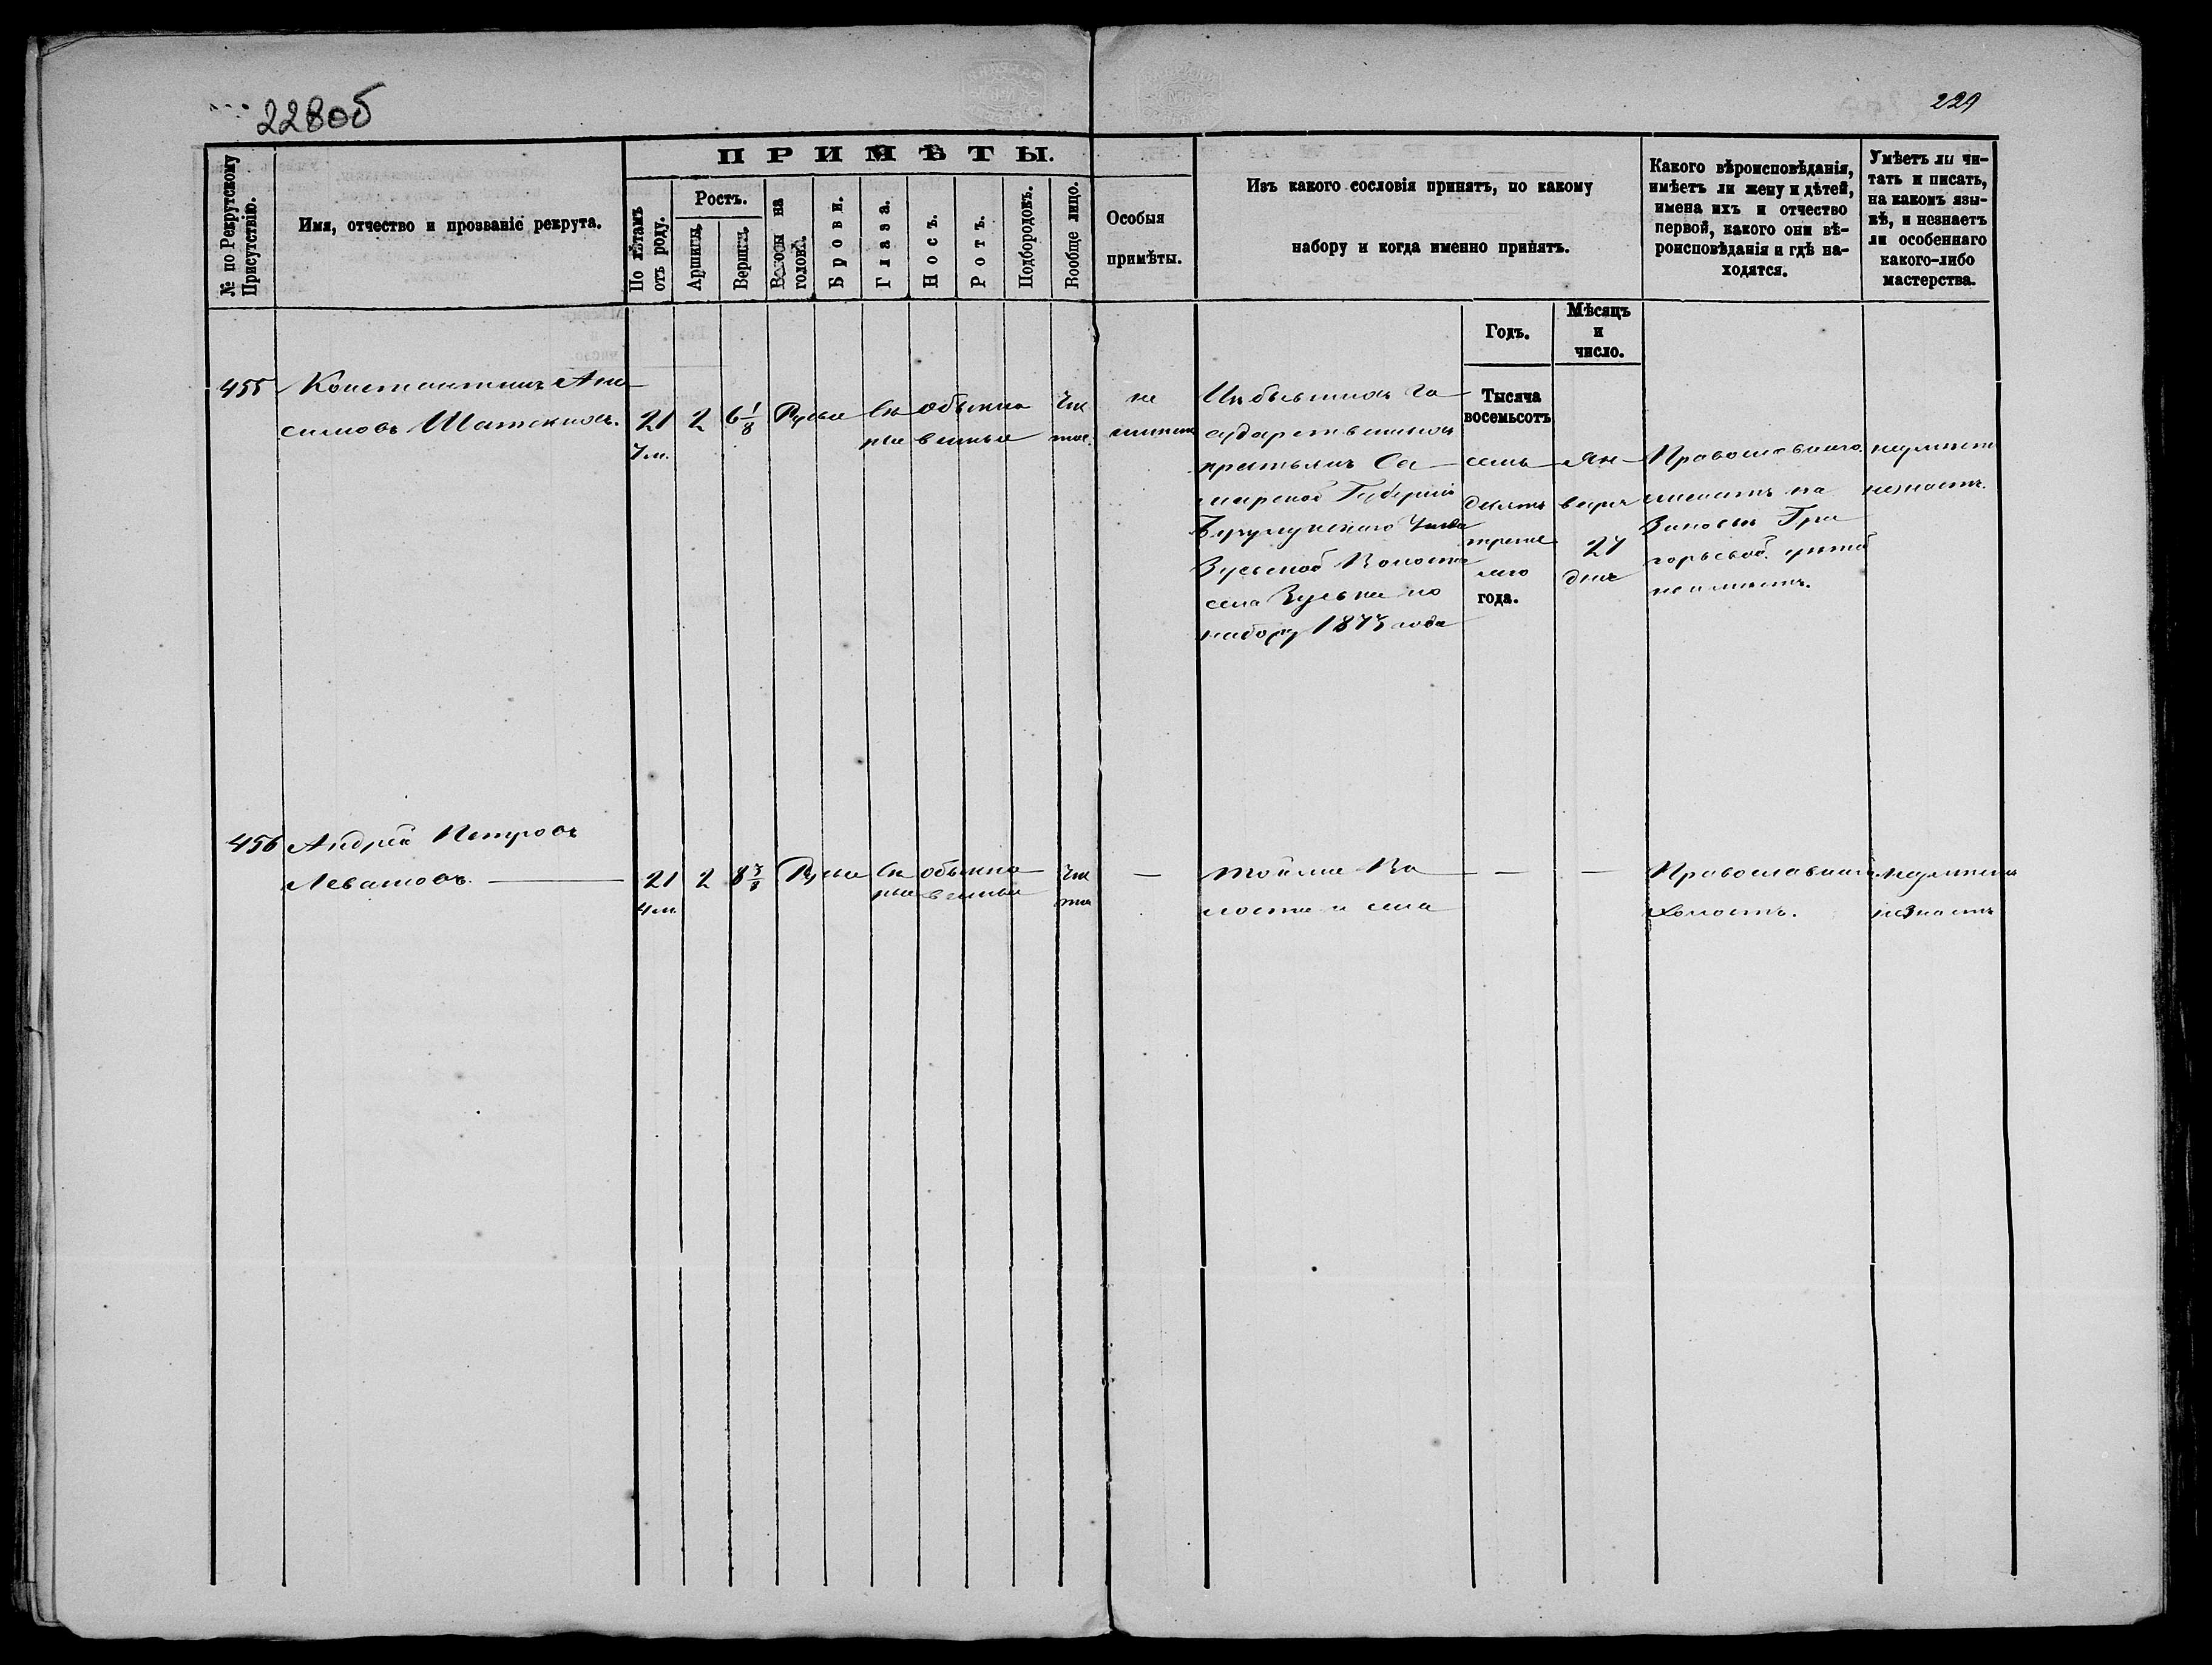 228об
229
№ по Рекрутскому Присутствію.
Имя, отчество и прозваніе рекрута.
ПРИМѢТЫ.
По лѣтамъ отъ роду.
Ростъ.
Аршины.
Вершки.
Волосы на головѣ.
Брови.
Глаза.
Носъ.
Ротъ.
Подбородокъ.
Вообще лицо.
Особыя
примѣты.
Изъ какого сословія принятъ, по какому
набору и когда именно принятъ.
Годъ.
Мѣсяцъ
и
число.
Какого вѣроисповѣданія,
имѣетъ ли жену и дѣтей,
имена ихъ и отчество
первой, какого они вѣ-
роисповѣданія и гдѣ на-
ходятся.
Умѣетъ ли чи-
тать и писать,
на какомъ язы-
кѣ, и незнаетъ
ли особеннаго
какого-либо
мастерства.
455
Константинъ Ани
симовъ
21
7 м.
2
6 1/8
Русые
Сѣ
рые
обыкно
венные
Чис
тое.
не
имѣетъ
Изъ бывшихъ Го
сударственныхъ
крестьянъ Са
марской Губерніи
Бугульминскаго Уѣзда
Волости
села
по
набору 1873 года
Тысяча
восемьсотъ
семь
десятъ
третье
яго
года.
Ян
варя
27
дня
Православнаго
женатъ на
Зиновьи Гри
горьевой дѣтей
неимѣетъ.
неумѣетъ
незнаетъ.
456
Андрей Петровъ
Левашовъ.
21
4 м
2
8 3/8
Русые
Сѣ
рые
обыкно
венные
Чис
тое
—
тойже Во
лости и села
—
—
Православный
холостъ.
неумѣетъ
незнаетъ